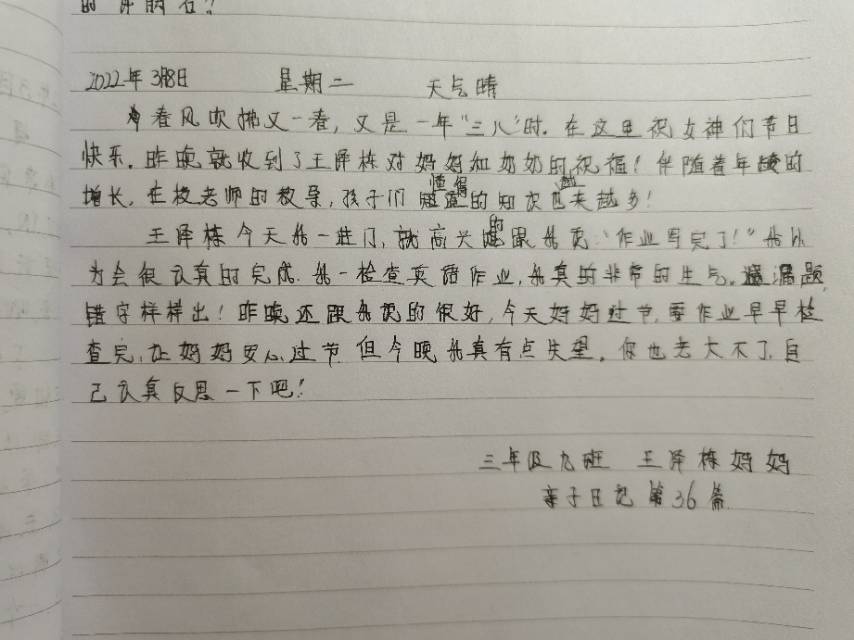 2022年3月8日 星期二 天气晴
春风吹拂又一春，又是一年“三八”时。在这里祝女神们节日
快乐。昨晚就收到了王泽栋对妈妈和奶奶的祝福！伴随着年龄的
增长，在校老师的教导，孩子们懂得的知识也越来越多！
王泽栋今天我一进门，就高兴的跟我说：“作业写完了！”我以
为会很认真的完成。我一检查英语作业，我真的非常的生气。漏题
错字样样出！昨晚还跟我说的很好，今天妈妈过节，要作业早早检
查完，让妈妈安心过节 但今晚我真有点失望。你也老大不了，自
己认真反思一下吧！
三年级九班 王泽栋妈妈
亲子日记第36篇